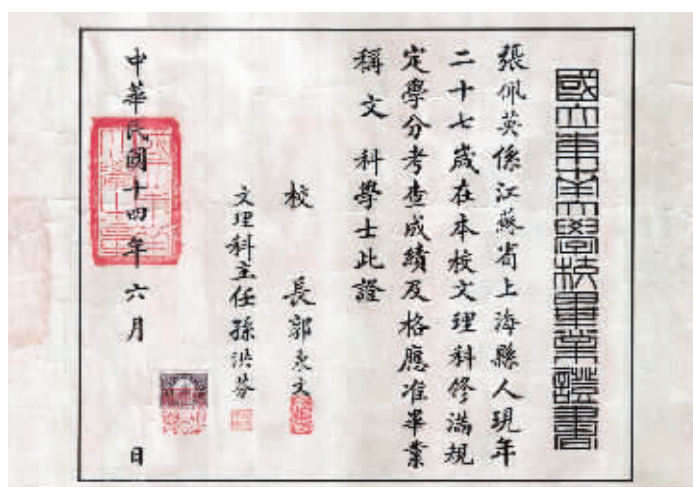 國立東南大學校畢業證書
張佩英係江蘇省上海縣人現年
二十七歲在本校文理科修滿規
定學分考查成績及格應准畢業
稱文科學士此證
校長郭秉文
文理科主任孫洪芬
中華民國十四年六月 日